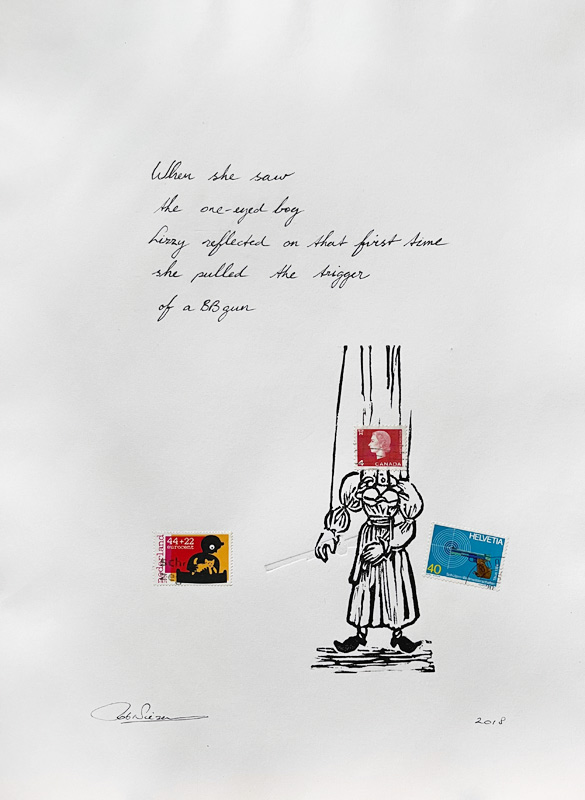 When she saw
the one-eyed boy
Lizzy reflected on that first time
she pulled the trigger
of a BB gun
4
CANADA
nederland
44+22
eurocent
HELVETIA
40
2018